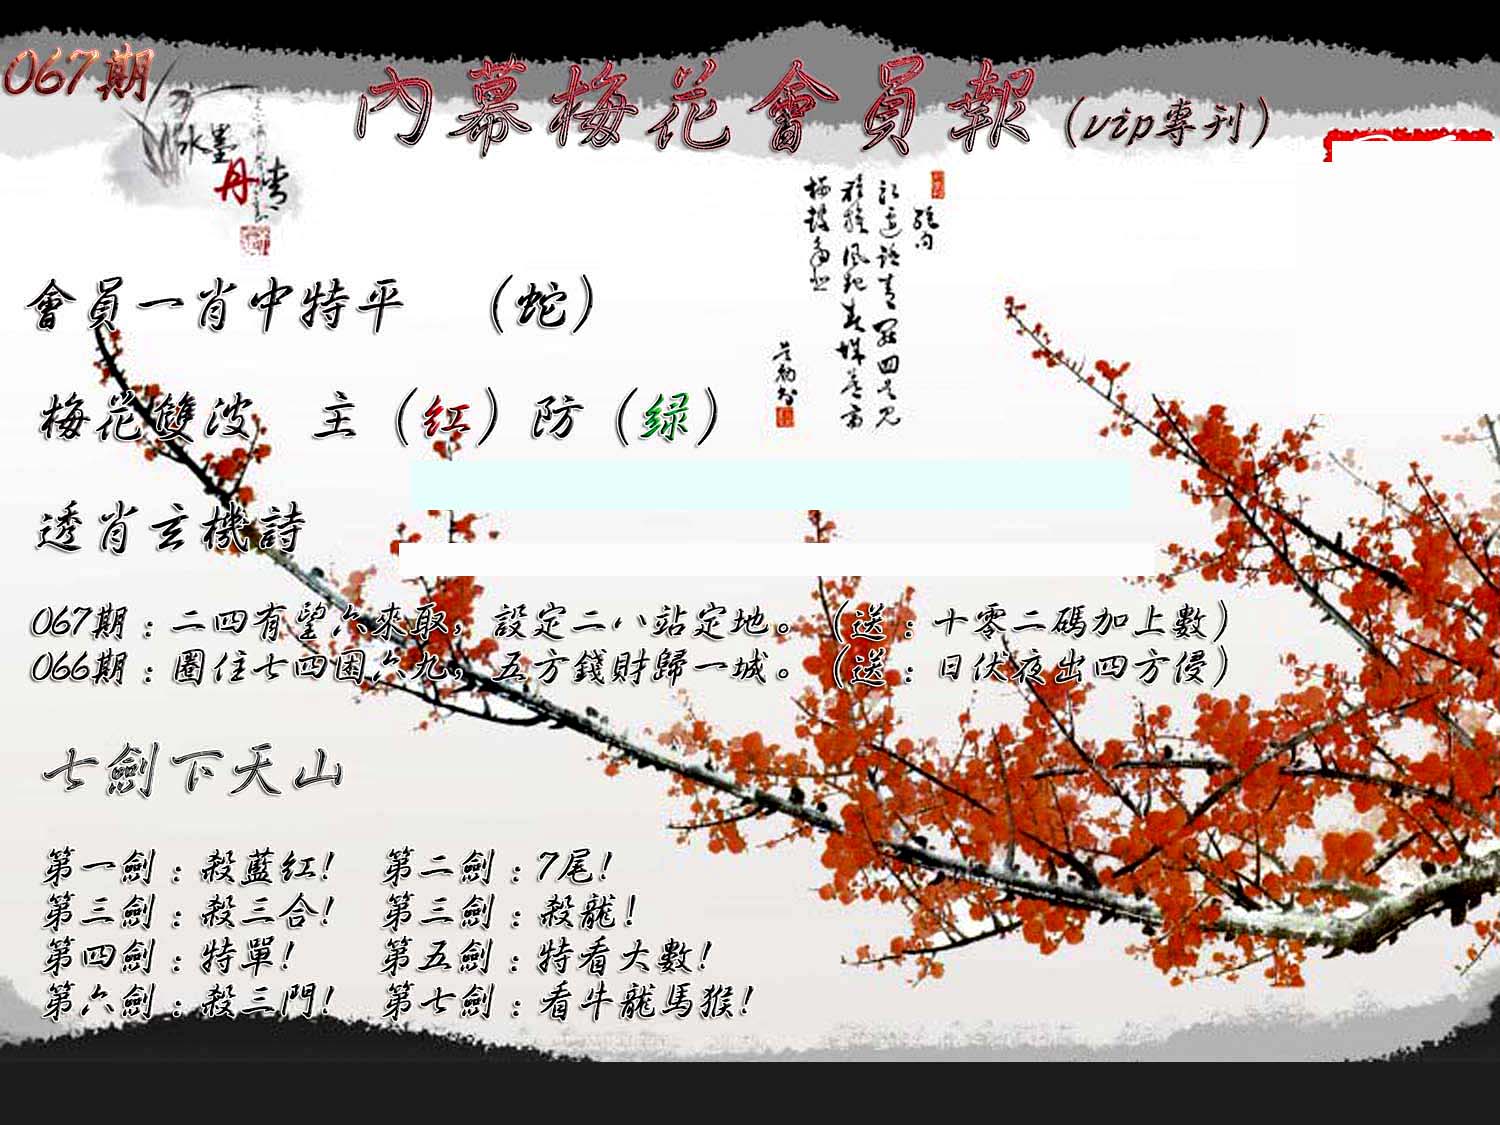 067期
內幕梅花會員報（vip專刊）
水墨
丹青
會員一肖中特平　（蛇）
梅花雙波　主（红）防（绿）
透肖玄機詩
067期：二四有望六來取，設定二八站定地。（送：十零二碼加上數）
066期：圈住七四困六九，五方錢財歸一城。（送：日伏夜出四方侵）
七劍下天山
第一劍：殺藍紅！　第二劍：7尾！
第三劍：殺三合！　第三劍：殺龍！
第四劍：特單！　第五劍：特看大數！
第六劍：殺三門！　第七劍：看牛龍馬猴！